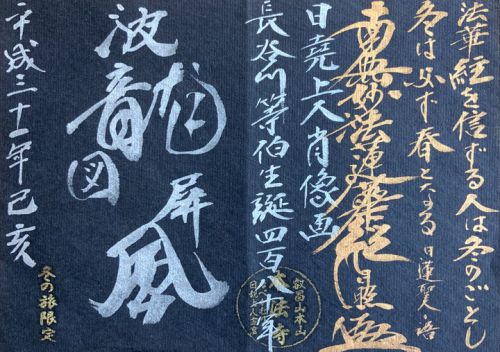 法華経を信ずる人は冬のごとし
冬は必ず春となる 日蓮聖人 語
南無妙法蓮華経
日堯上人肖像画
長谷川等伯生誕四百八十年
叡昌山本山
本法寺
波龍図
屏風
平成三十一年己亥
冬の旅限定